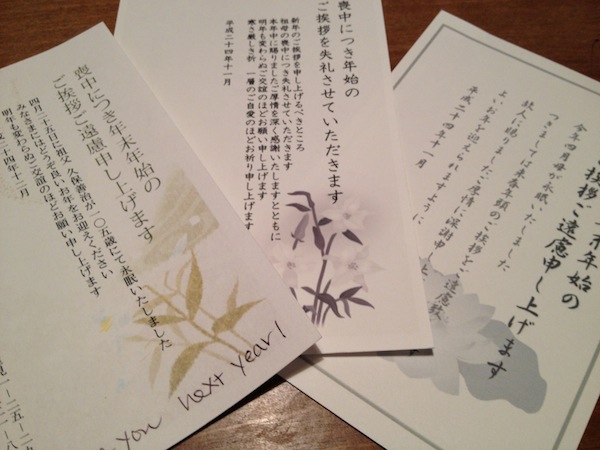 喪中につき年末年始の
ご挨拶ご遠慮申し上げます
四月二十五日に祖父 久保善治が一〇五歳にて永眠いたしました
みなさまにはどうぞ良いお年をお迎えください
明年も変わらぬご交誼のほどお願い申し上げます
四年十二月
you next year!
喪中につき年始の
ご挨拶を失礼させていただきます
新年のご挨拶を申し上げるべきところ
祖母の喪中につき失礼させていただきます
本年中に賜りましたご厚情を深く感謝いたしますとともに
明年も変わらぬご交誼のほどお願い申し上げます
寒さ厳しき折 一層のご自愛のほどお祈り申し上げます
平成二十四年十一月
末年始の
ご挨拶ご遠慮申し上げます
今年四月母が永眠いたしました
つきましては来春年頭のご挨拶をご遠慮致
故人に賜りましたご厚情に深謝申し上
よいお年を迎えられますように
平成二十四年十一月